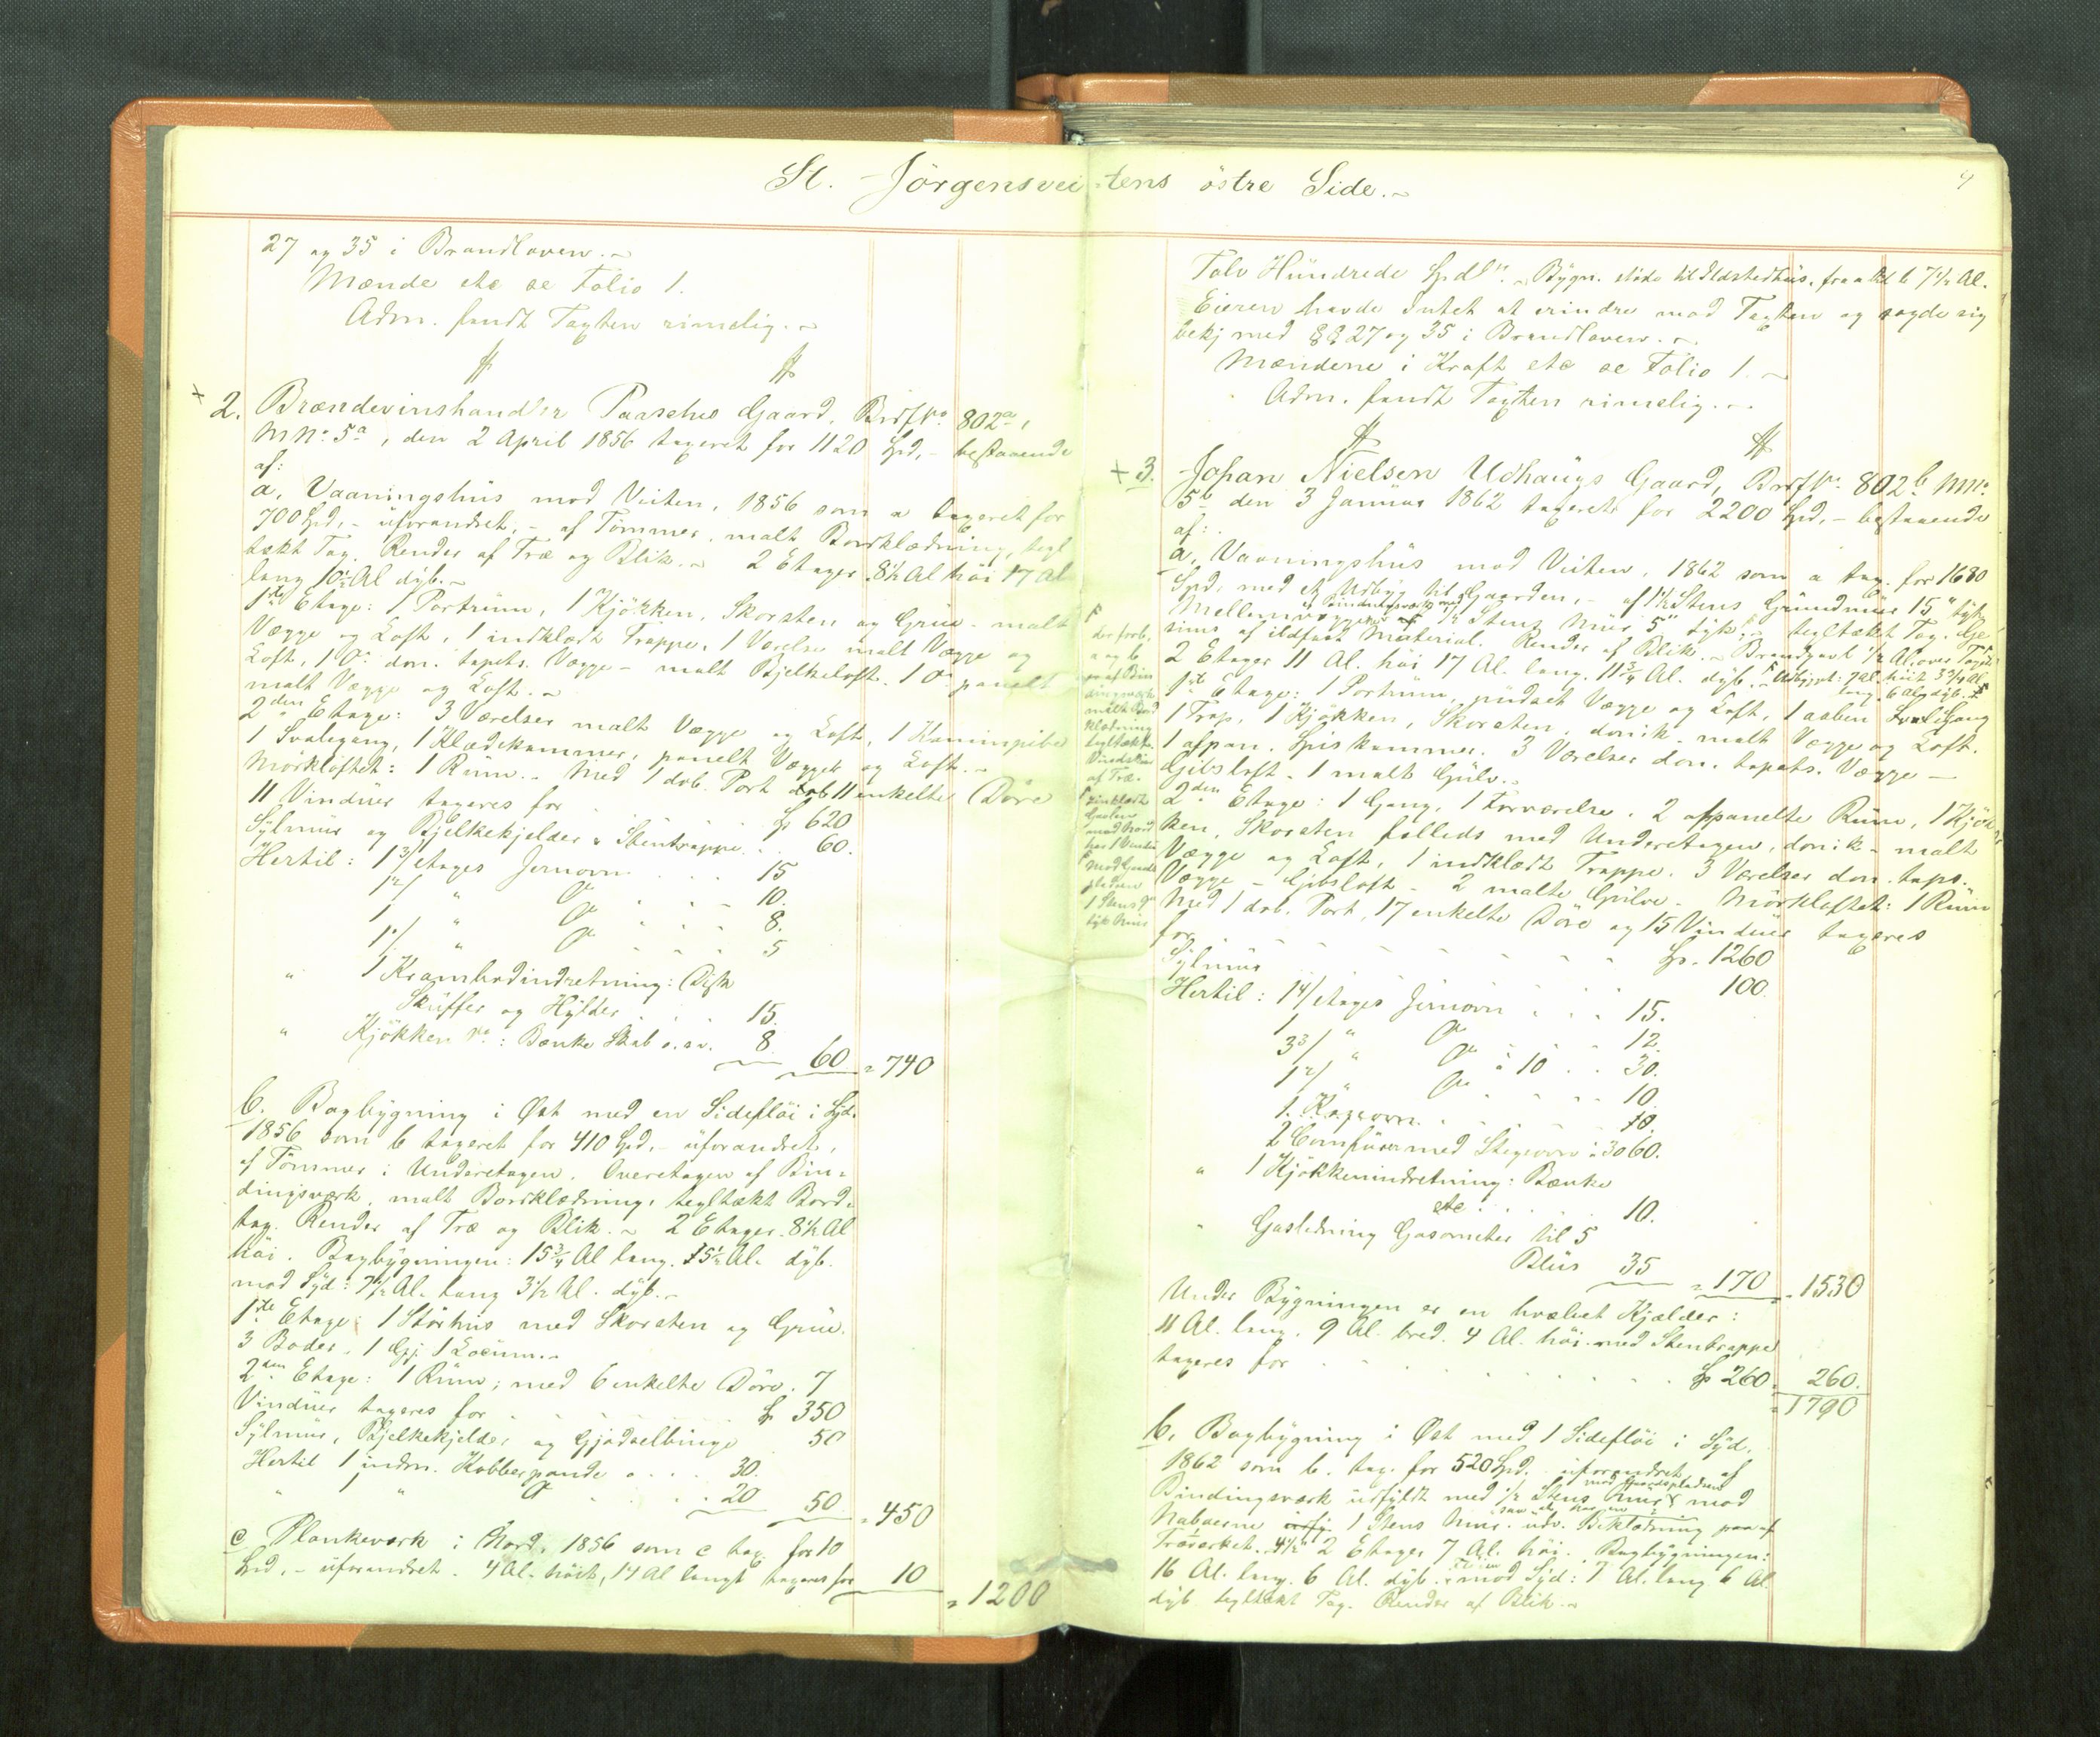 St. Jörgensveitens östre Side.
27 og 35 i Brandloven.
Mænde etc se Folio 1.
Adm. fandt Taxten rimelig.
2. Brændevinshandler Paasches Gaard, Brdf No 802a,
MNo 5a, den 2 April 1856 taxeret for 1120 Spd, - bestaaende
af:
a, Vaaningshus mod Veiten, 1856 som a taxeret for
700 Spd, - uforandret, - af Tømmer, malt Bordklædning, tegl
tækt Tag. Render af Træ og Blik. 2 Etager 8½ Al høi 17 Al
lang 10½ Al dyb.
1ste Etage: 1 Portrum, 1 Kjökken, Skorsten og Grue - malt
Vægge og Loft, 1 indklædt Trappe, 1 Værelse malt Vægge og
Loft, 1 do don. tapets. Vægge - malt Bjelkeloft. 1 do panelt
malt Vægge og Loft.
2den Etage: 3 Værelser malt Vægge og Loft, 1 Kaminpibe
1 Svalegang, 1 Klædekammer, panelt Vægge og Loft.
Mörkloftet: 1 Rum. - Med 1 dob. Port 11 enkelte Döre
11 Vinduer taxeres for Sp 620
Sylmur og Bjelkekjelder & Stentrappe 60.
Hertil: 1 3/ Etages Jernovn 15
1 2/ " do 10.
1 " do 8.
1 1/ " do 5
" 1 Krambodindretning: Disk
Skuffer og Hylder 15.
" Kjökken do: Bænke Skab o.s.v. 8.
60 = 740
b. Bagbygning i Öst med en Sideflöi i Syd.
1856 som b taxeret for 410 Spd, - uforandret,
af Tömmer i Underetagen. Overetagen af Bin-
dingsværk, malt Bordklædning, tegltækt Bord-
tag. Render af Træ og Blik. 2 Etager. 8½ Al
höi. Bagbygningen: 15¾ Al lang. 5½ Al. dyb.
mod Syd: 7½ Al. lang 3½ Al. dyb.
1ste Etage: 1 Størhus med Skorsten og Grue.
3 Boder, 1 Gj. 1 Locum.
2den Etage: 1 Rum; med 6 enkelte Döre. 7
Vinduer taxeres for Sp 350
Sylmur, Bjelkekjelder og Gjødselbinge 50
Hertil 1 indm. Kobberpande 30.
" " do 20 50 = 450
c Plankeværk i Nord, 1856 som c tax. for 10
Spd, - uforandret. 4 Al. höit, 14 Al langt taxeres for 10
= 1200
4
Tolv Hundrede Spdlr. Bygn. støde til Ildstedhus, fra a til b 7½ Al.
Eieren havde Intet at erindre mod Taxten og sagde sig
bekj med §§ 27 og 35 i Brandloven.
Mændene i Kraft etc se Folio 1.
Adm. fandt Taxten rimelig.
3. Johan Nielsen Udhaugs Gaard, Brdf No 802b MNo
5b den 3 Januar 1862 taxeret for 2200 Spd, - bestaaende
af:
a, Vaaningshus mod Veiten, 1862 som a tax. for 1680
Spd, med et Udbyg til Gaarden, - af 1½ Stens Grundmur 15" tyk,
Mellemvægge af Bindingsværk med ½ Stens Mur 5" tyk; tegltækt Tag. Ge-
sims af ildfast Material. Render af Blik. Brandgavl ½ Al. over Taget
2 Etager 11 Al. höi 17 Al. lang. 11¾ Al. dyb. Udbyget: 7 Al. höit 3 Al.
lang. 6 Al. dyb.
1ste Etage: 1 Portrum, pudset Vægge og Loft, 1 aaben Gang
1 Trap, 1 Kjökken, Skorsten, don ik - malt Vægge og Loft.
1 afpan. Spiskammer. 3 Værelser don. tapets. Vægge -
Gibsloft - 1 malt Gulv.
2den Etage: 1 Gang, 1 Forværelse, 2 afpanelte Rum, 1 Kjök
ken, Skorsten fælleds med Underetagen, don ik - malt
Vægge og Loft, 1 indklædt Trappe. 3 Værelser don. tape.
Vægge - Gibsloft - 2 malte Gulve. Mörkloftet: 1 Rum
Med 1 dob. Port, 17 enkelte Döre og 15 Vinduer taxeres
for Sp. 1260
Sylmur 100.
Hertil: 1 4/ etages Jernovn 15.
1 " do 12.
3 3/ " do à 10 30.
1 2/ " do 10.
1 Kageovn 10.
2 Comfurer med Stegeovn à 30 60.
" 1 Kjökkenindretning: Bænke
etc 10.
" Gasledning Gasometer til 5
Blus 35 = 170 = 1530
Under Bygningen er en hvælvet Kjælder:
11 Al. lang. 9 Al. bred. 4 Al. höi. med Stentrappe
taxeres for Sp 260 260.
= 1790
b, Bagbygning i Öst med 1 Sideflöi i Syd.
1862 som b. tax. for 520 Spd. uforandret af
Bindingsværk udfyldt med ½ Stens Mur mod Gaardspladsen mod
Naboerne 1 Stens Mur. udv. Beklædning paa af
Træværket. 2 Etager 7 Al. höi. Bagbygningen:
16 Al. lang. 6 Al. dyb. Flöien mod Syd: 7 Al. lang 6 Al.
dyb tegltækt Tag. Render af Blik.